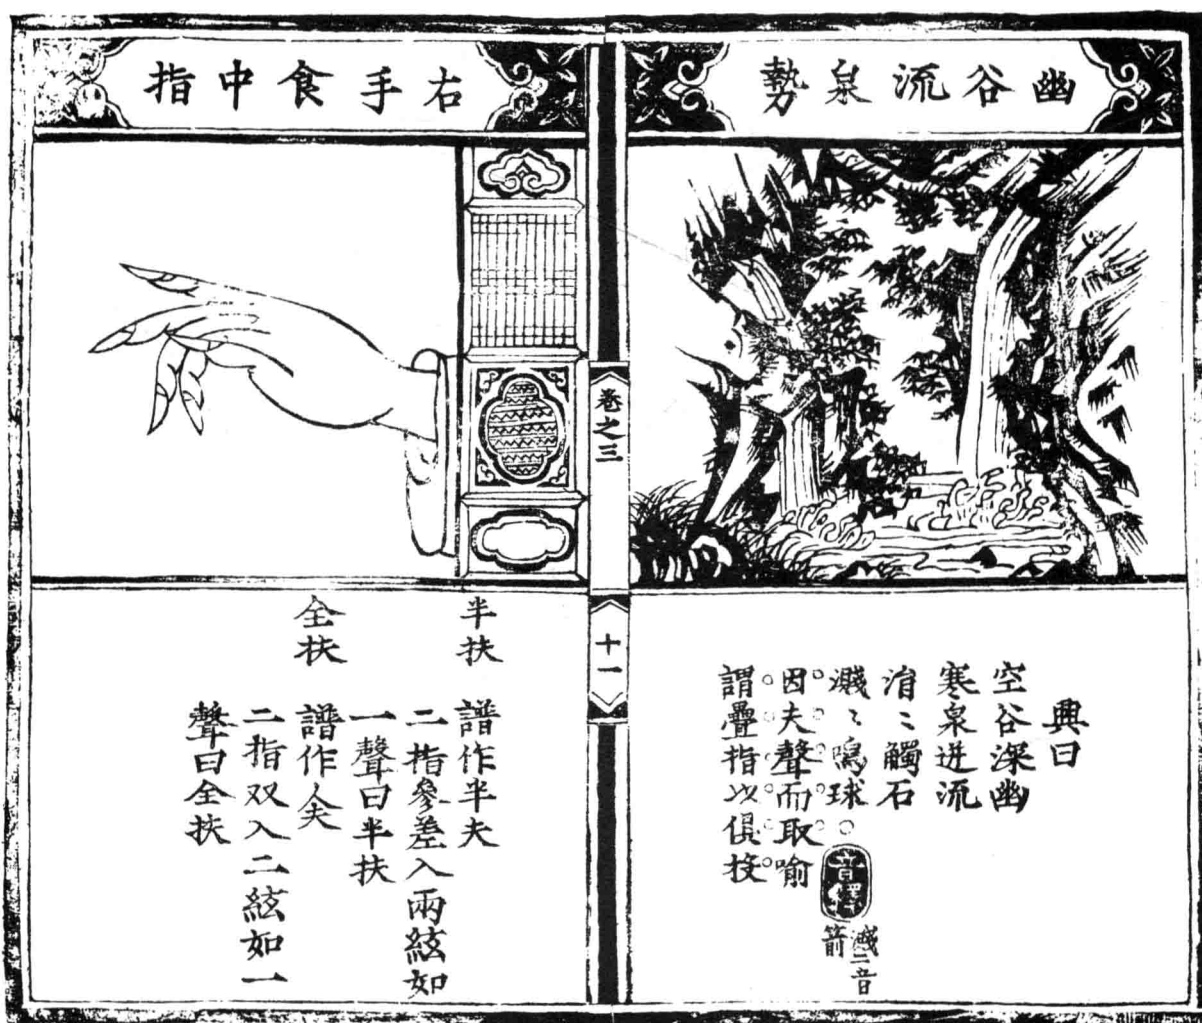 幽谷流泉勢
興曰
空谷深幽
寒泉迸流
涓〻觸石
濺〻鳴球
因夫聲而取喻
謂疊指以俱
音釋
濺二音
箭
卷之三
十一
右手食中指
半扶
譜作半夫
二指參差入兩絃如
一聲曰半扶
全扶
譜作
二指双入二絃如一
聲曰全扶